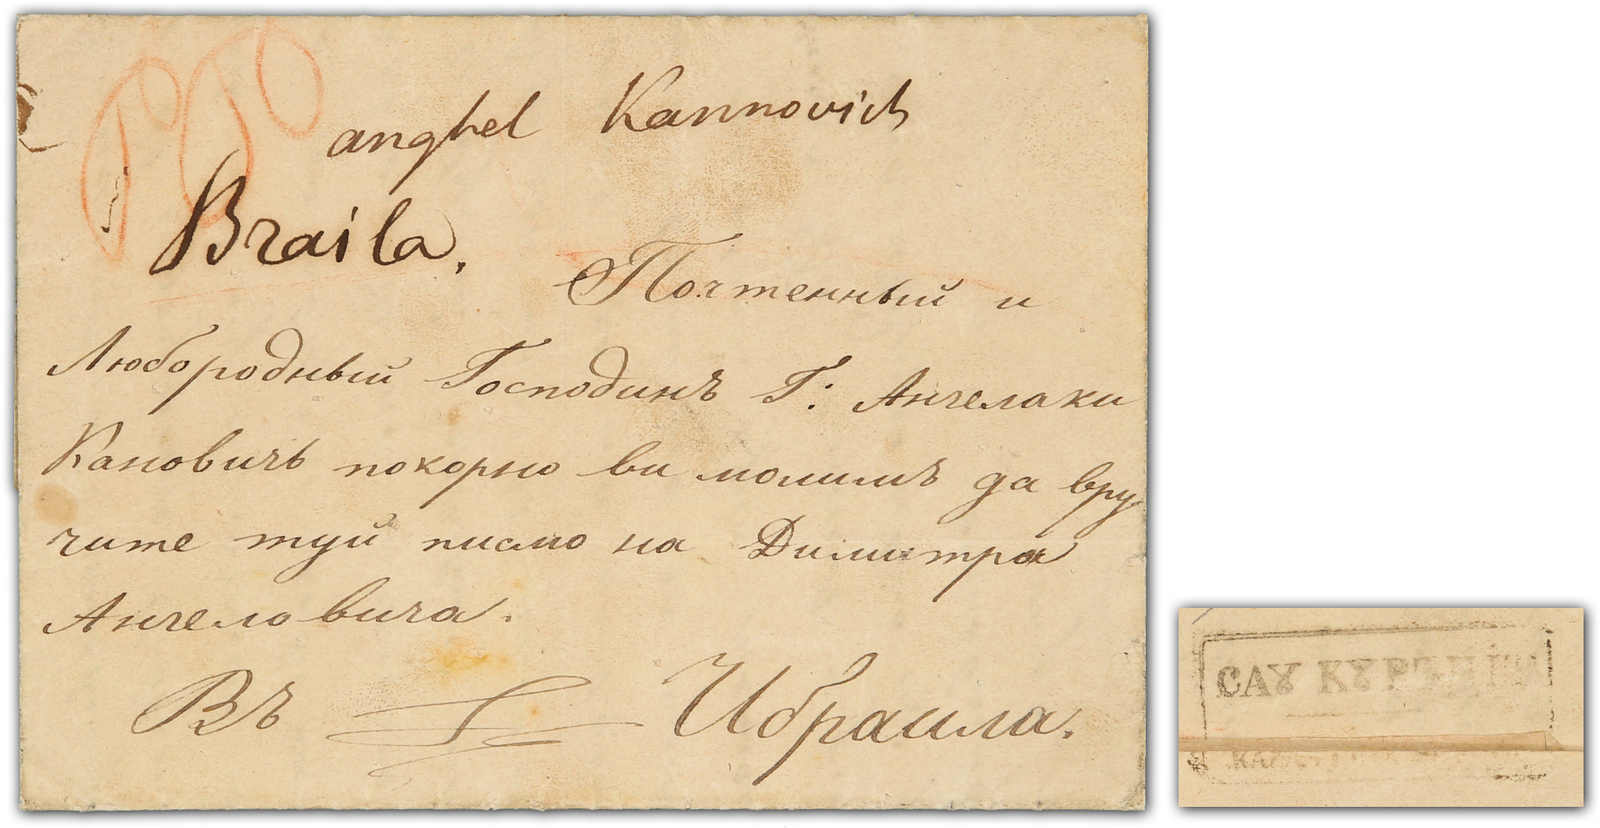 anghel Kannovich
Braila.
Почтенный и
Любородный Господинъ Г: Ангелаки
Кановичъ покорно ви молимъ да вру
чите туй писмо на Димитра
Ангеловича.
Въ Ибраила.
САꙊ КꙊРЪЦІТ